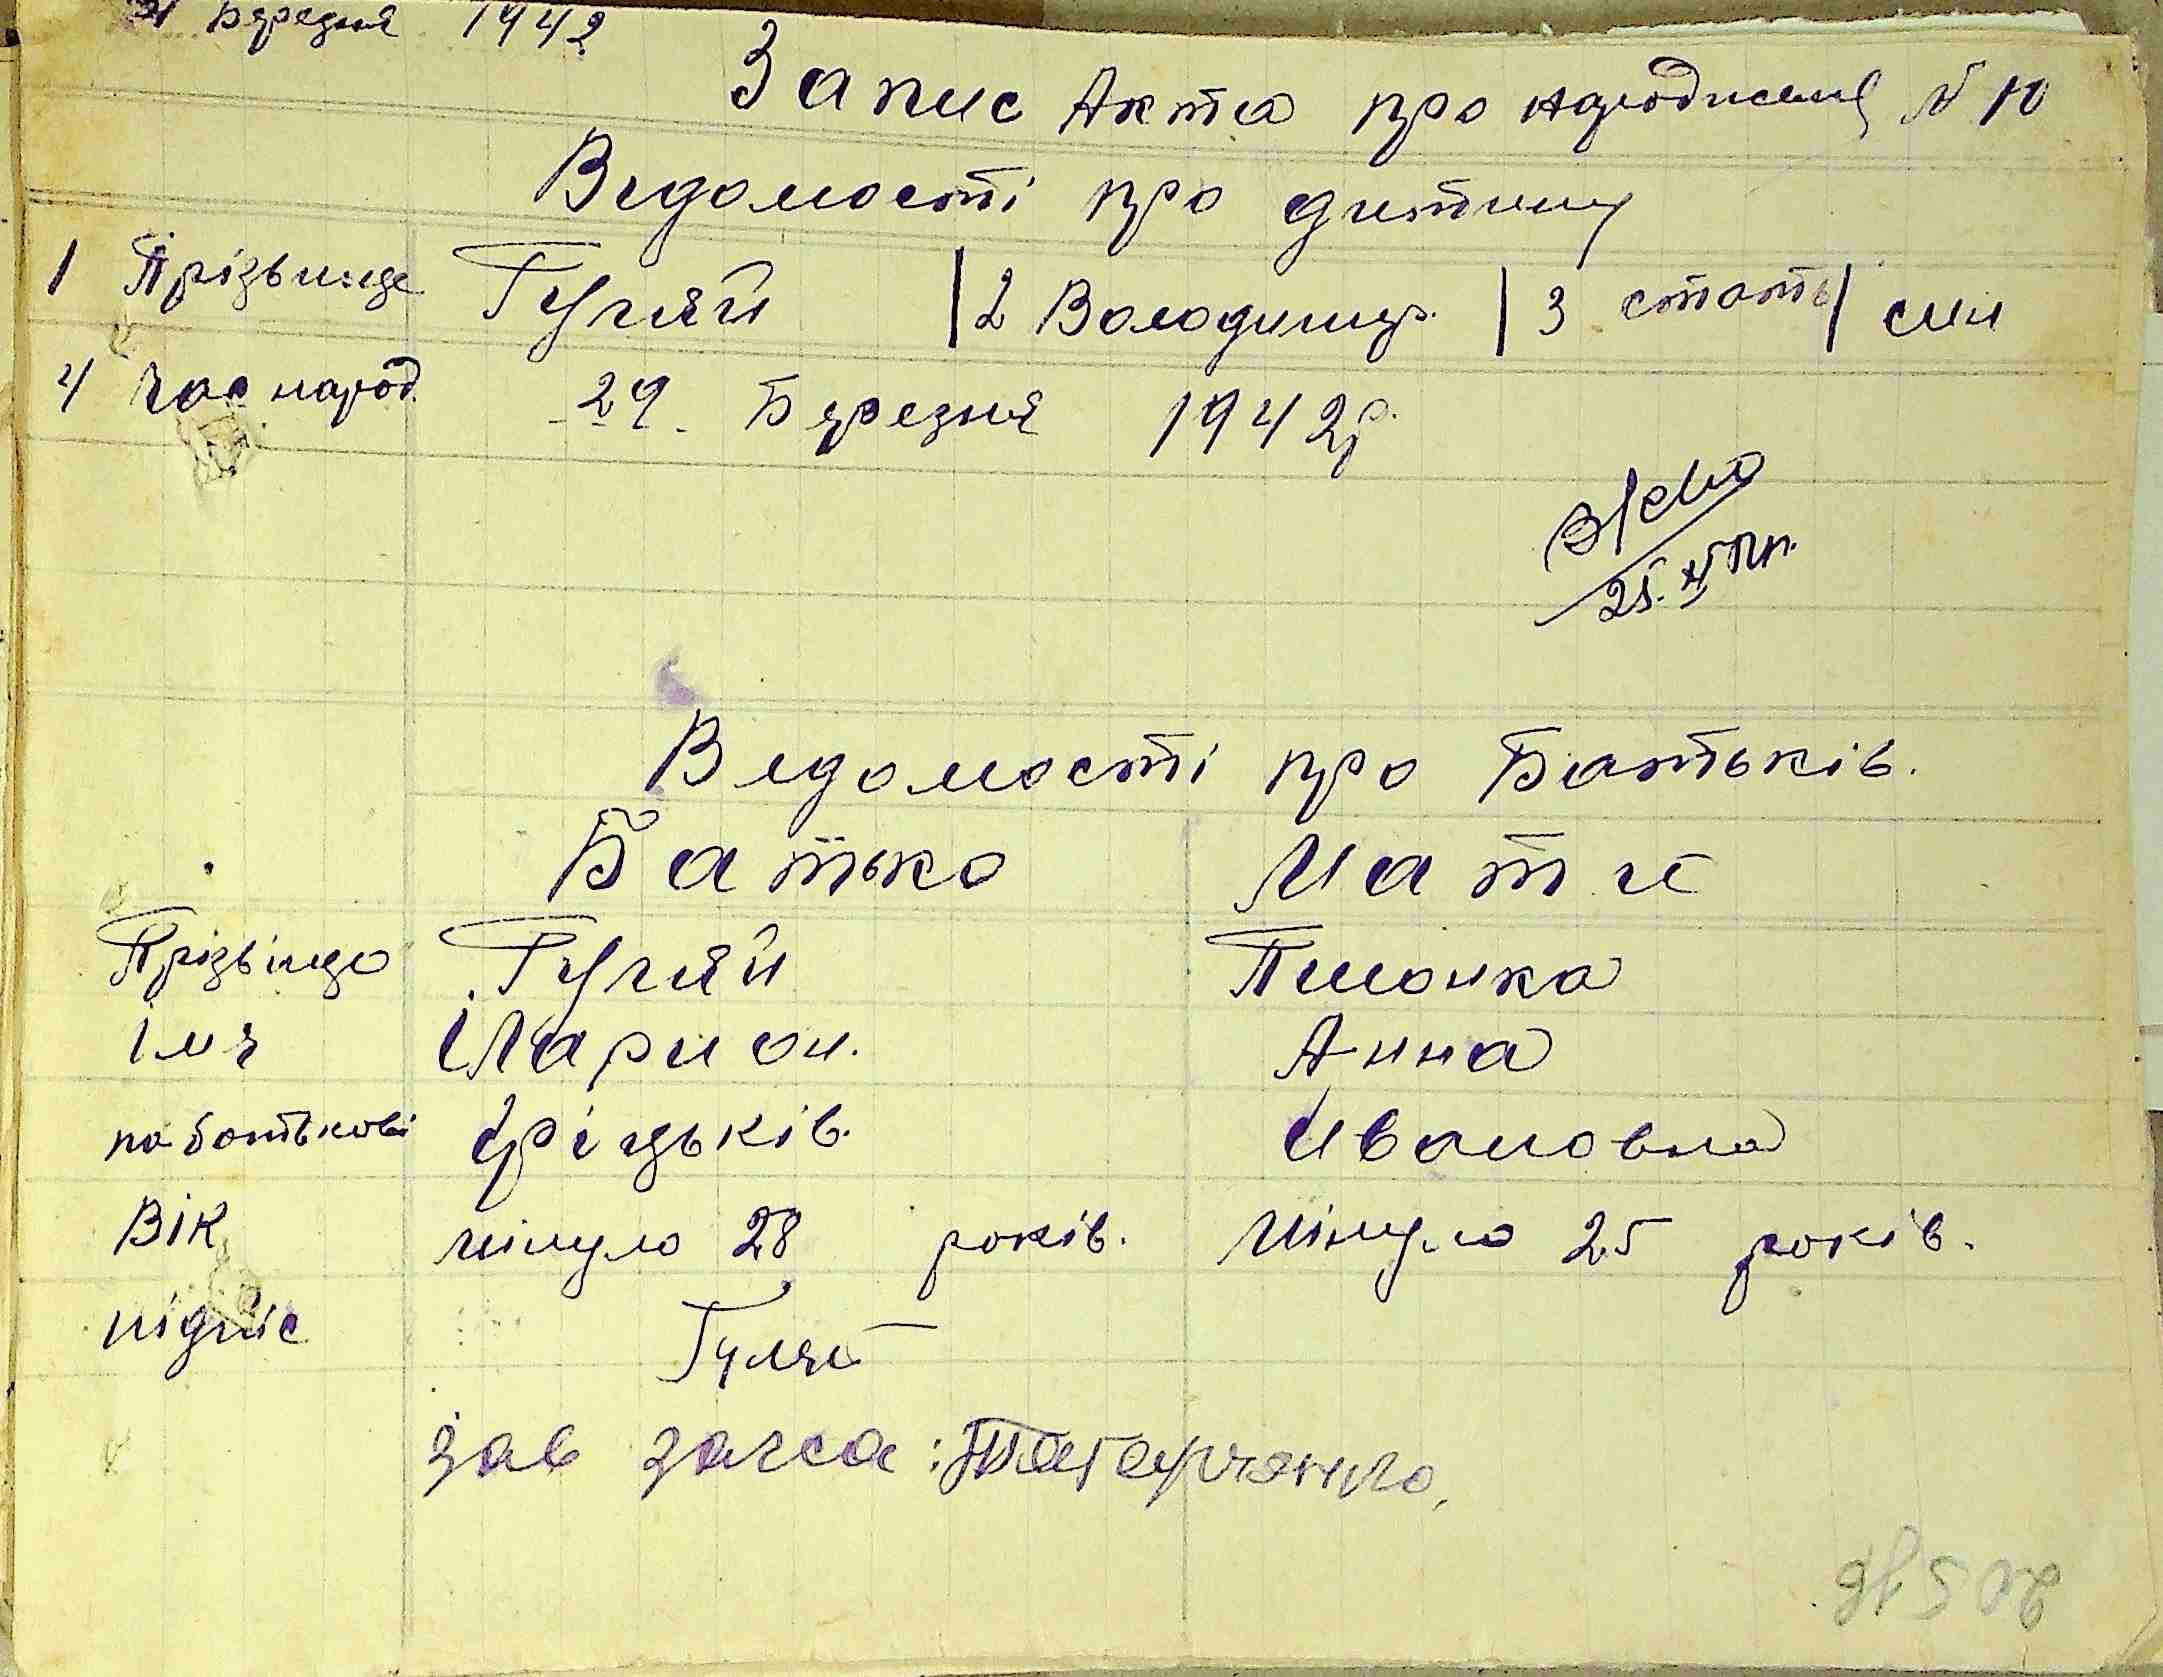 31 Бярезня 1942
Запис Акта про народження № 10
Відомості про дитину
1 Прізвище Гуляй | 2 Володимир. | 3 стать | син
4 Час народ. 29. Бярезня 1942 р.
25.
Відомості про Батьків.
Батько Мати
Прізвіще Гуляй Пшонка
імя іларион. Анна
по батькові Гріцьків. Ивановна
Вік мінуло 28 років. мінуло 25 років.
підпіс Гуляй
Зав загса: Татарченко